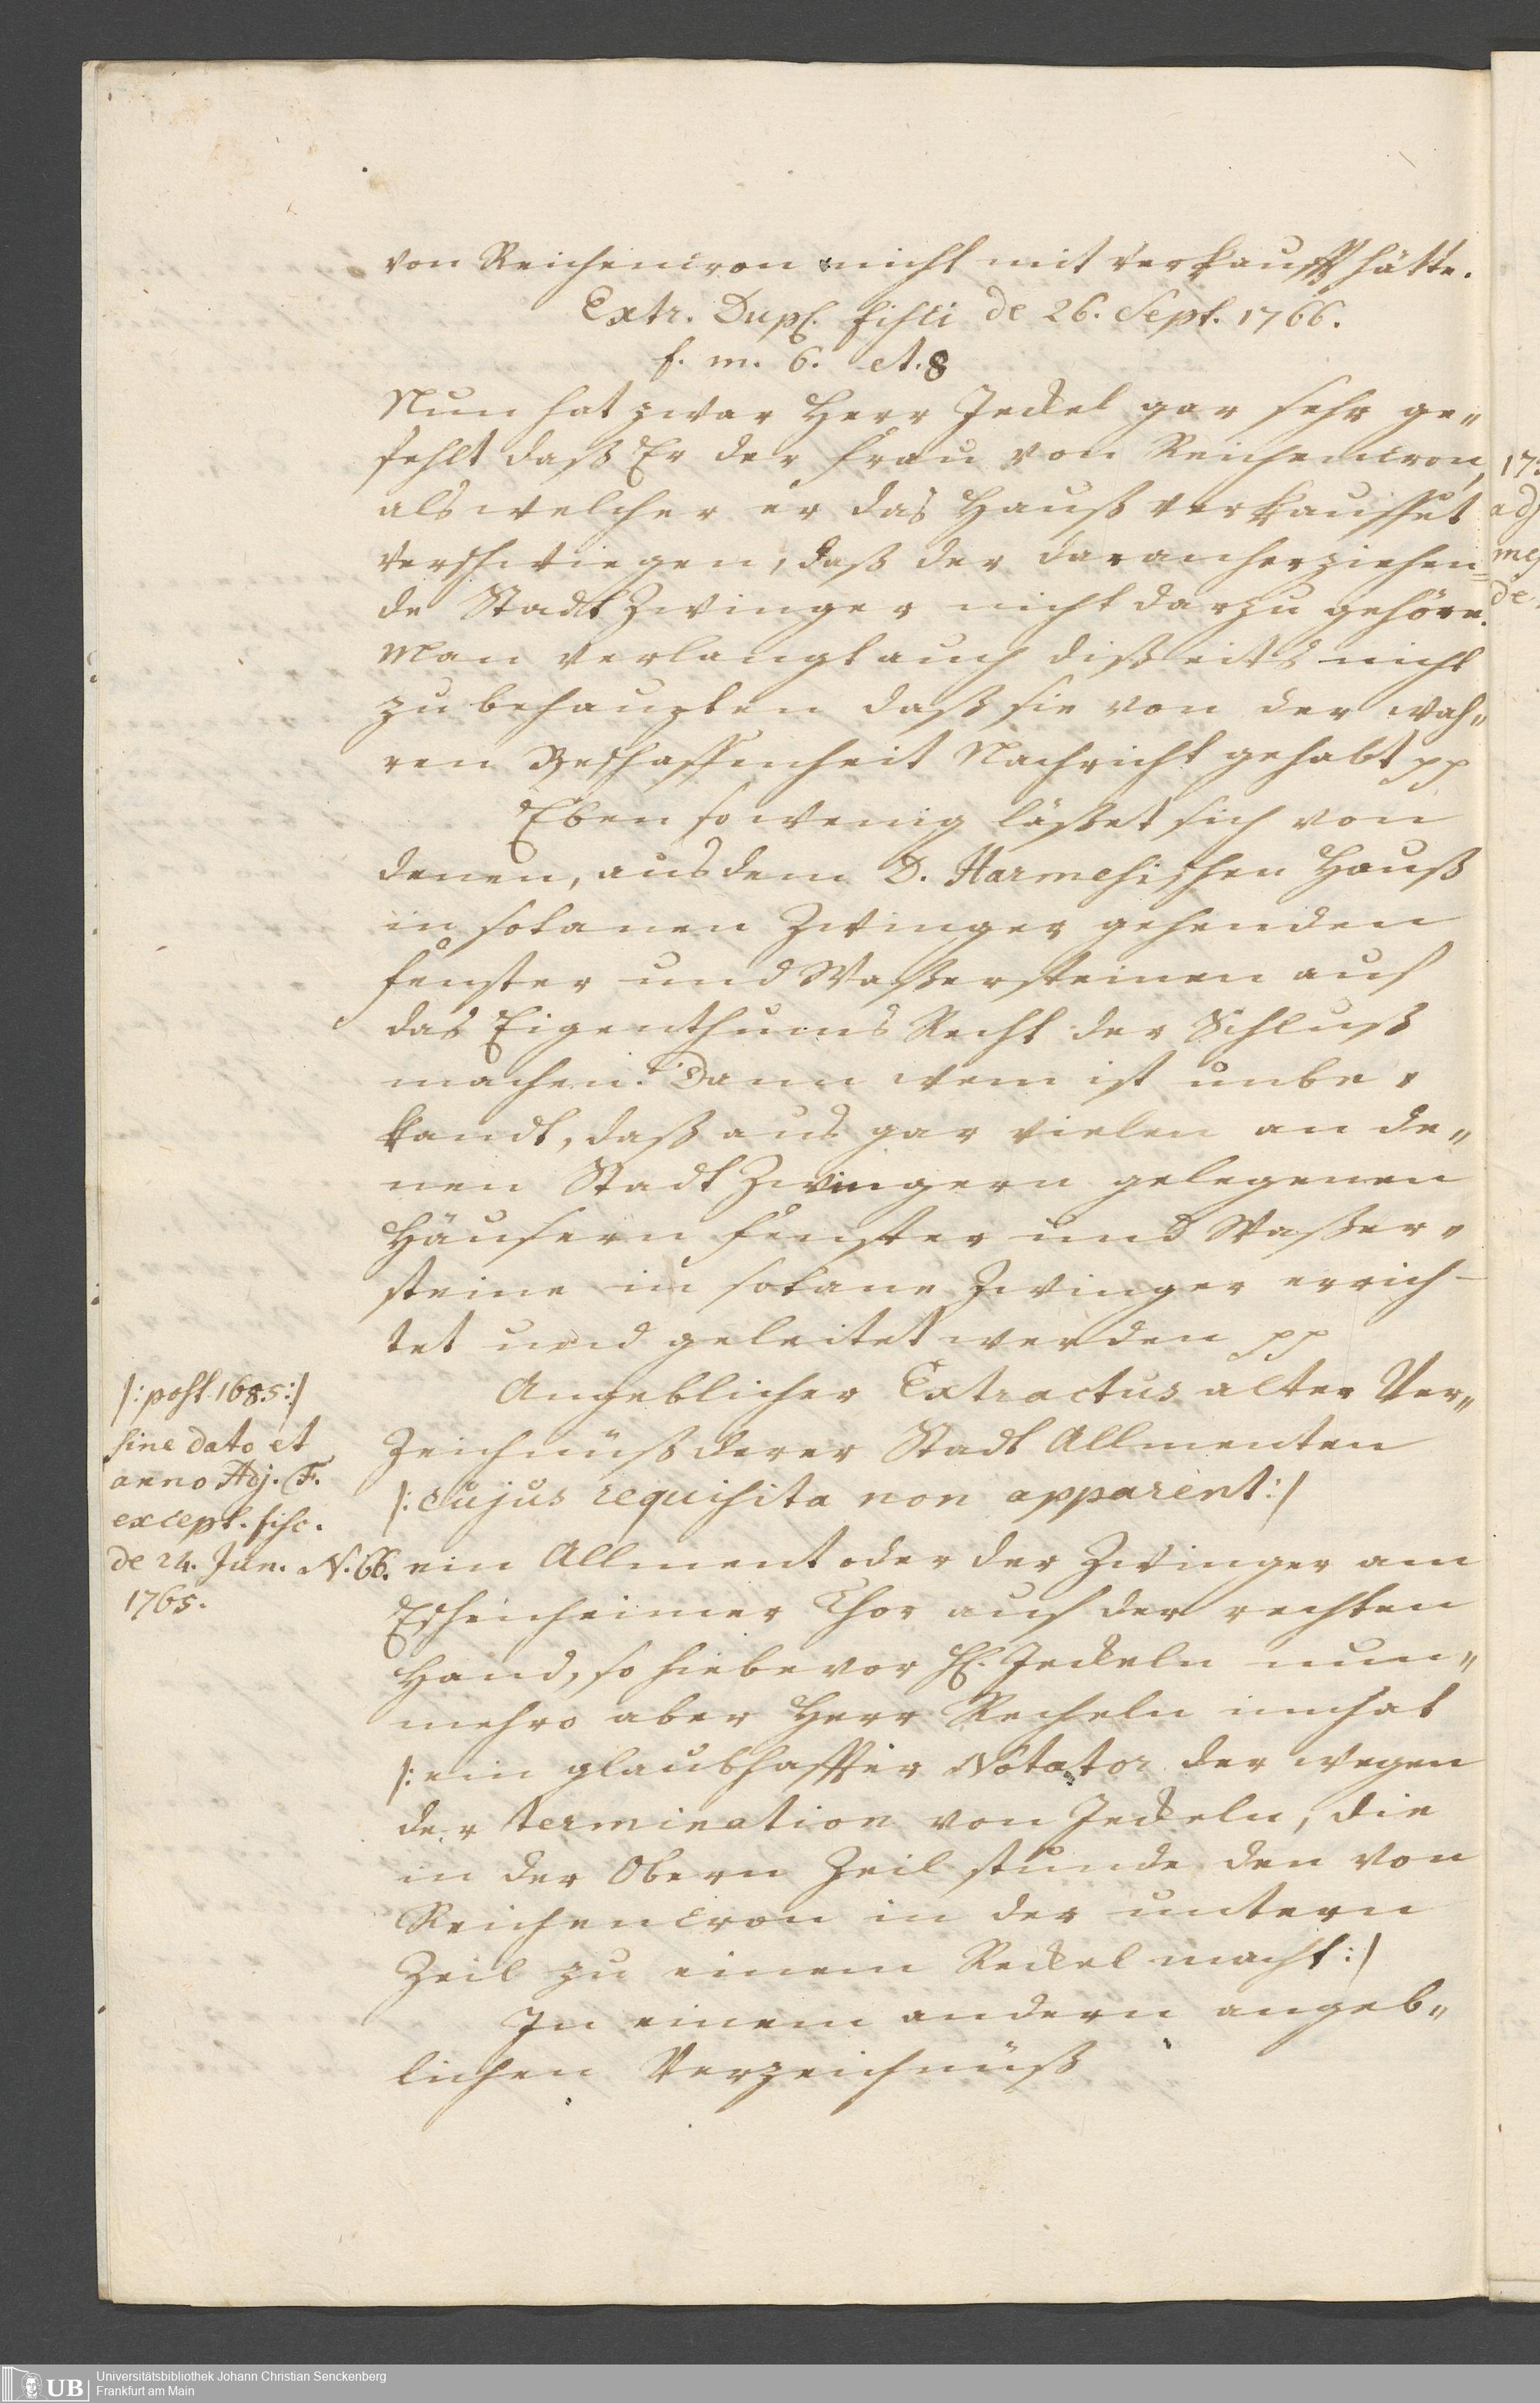 von Reichencron nicht mit verkaufft hätte.
Extr. Dupl. fisci de 26. Sept. 1766.
f. m. 6. et. 8
Nun hat zwar Herr Jeckel gar sehr ge„
fehlt daß Er der Frau von Reichencron,
als welcher er das Hauß verkauffet
verschwiegen, daß der daranherziehen=
de Stadt Zwinger nicht darzu gehöre.
Man verlangt auch disseits nicht
zu behaupten daß sie von der wah„
ren Beschaffenheit Nachricht gehabt pp
Eben so wenig lässet sich von
denen, aus dem D. Harmesischen Hauß
in sotanen Zwinger gehenden
Fenster und Wassersteinen auf
das Eigenthums Recht der Schluß
machen. Dann wem ist unbe„
kandt, daß aus gar vielen an de„
nen Stadt Zwingern gelegenen
Häusern Fenster und Wasser„
steine in sotane Zwinger errich-
tet und geleitet werden pp
Angeblicher Extractus alter Ver„
Zeichnüß derer Stadt Allmenten
/: cujus requisita non apparent :/
/: post 1685 :/
sine dato et
anno Adj. F.
except. fisc.
de 24. Jun.
1765.
N. 66. ein Allment oder der Zwinger am
Eschenheimer Thor auf der rechten
Hand, so hiebevor H. Jeckeln nun„
mehro aber Herr Recheln innhat
/: ein glaubhaffter Notator der wegen
der termination von Jeckeln, die
in der Obern Zeil stunde den von
Reichencron in der untern
Zeil zu einem Reckel macht :/
In einem andern angeb„
lichen Verzeichnüß
17:
adj
de
UB Universitätsbibliothek Johann Christian Senckenberg
Frankfurt am Main